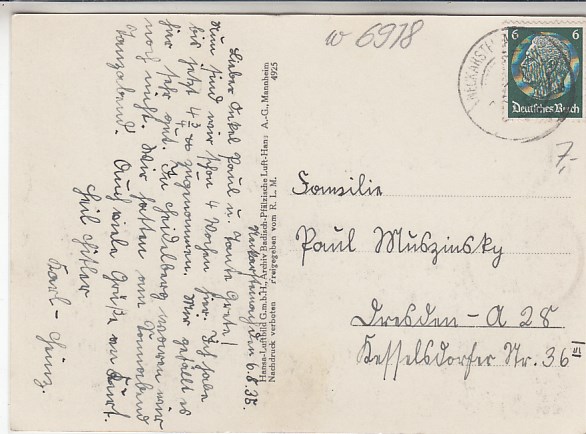 Neckarsteinach, den 6.8.35.
Lieber Onkel Paul u. Tante Grete!
Nun sind wir schon 4 Wochen hier. Ich habe
bis jetzt 4 3/4 ℔ zugenommen. Mir gefällt es
hier sehr gut. In Heidelberg waren wir
noch nicht. Wir hatten am Sonnabend
Tanzabend. Auch viele Grüße von Kurt.
Heil Hitler
Karl-Heinz.
Hansa-Luftbild G.m.b.H., Archiv Badisch-Pfälzische Luft-Hansa A.-G., Mannheim
Nachdruck verboten freigegeben vom R. L. M. 4925
w 6918
6 6
Deutsches Reich
7,-
Familie
Paul Muszinsky
Dresden-A 28
Kesselsdorfer Str. 36 III